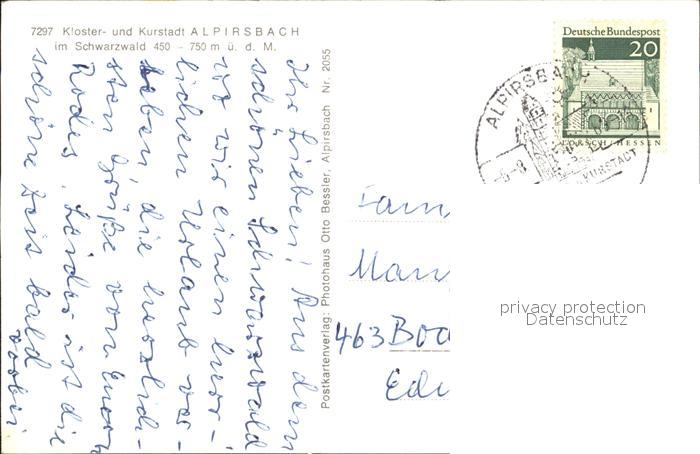 7297 Kloster- und Kurstadt ALPIRSBACH
im Schwarzwald 450 - 750 m ü. d. M.
Ihr Lieben! Aus dem
schönen Schwarzwald
wo wir einen herr-
lichen Urlaub ver-
leben, die herzlich-
sten Grüße von Euren
Rodes. Leider ist die
schöne Zeit bald
vorbei.
Postkartenverlag: Photohaus Otto Bessler, Alpirsbach Nr. 2055
Deutsche Bundespost
20
LORSCH/HESSEN
ALPIRSBACH
KURSTADT
Fam
Man
463 Boc
Edu
privacy protection
Datenschutz